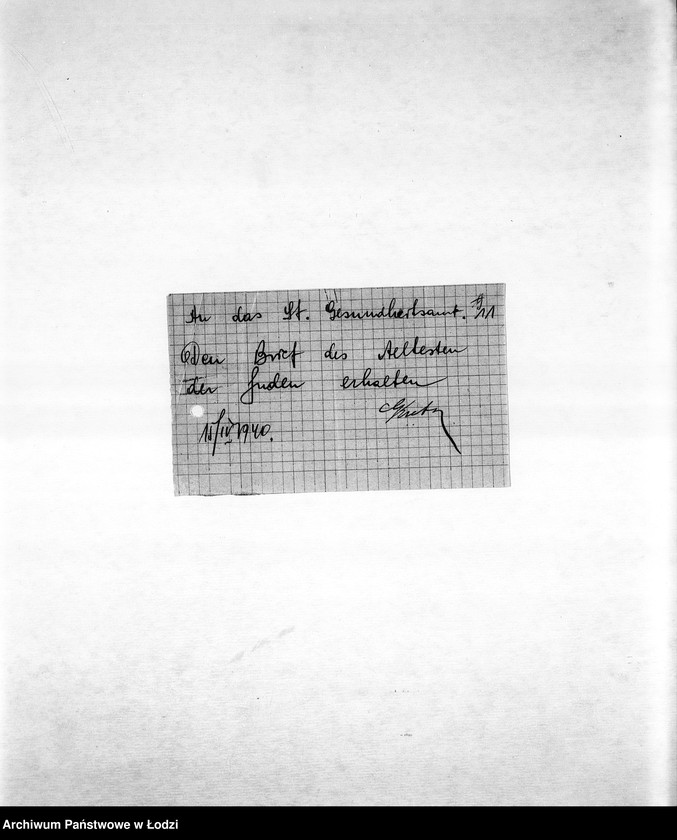 An das St. Gesundheitsamt.
Den Brief des Aeltesten
der Juden erhalten
11/IV 1940.
Archiwum Państwowe w Łodzi